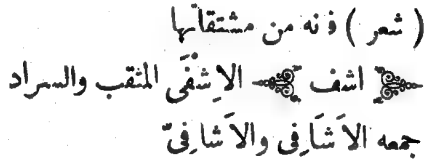 ( شعر ) فانه من مشتقاتها
اشف الاِشْفَى المثقب والسراد
جمعه الاَشَافِى والاَشافِىّ